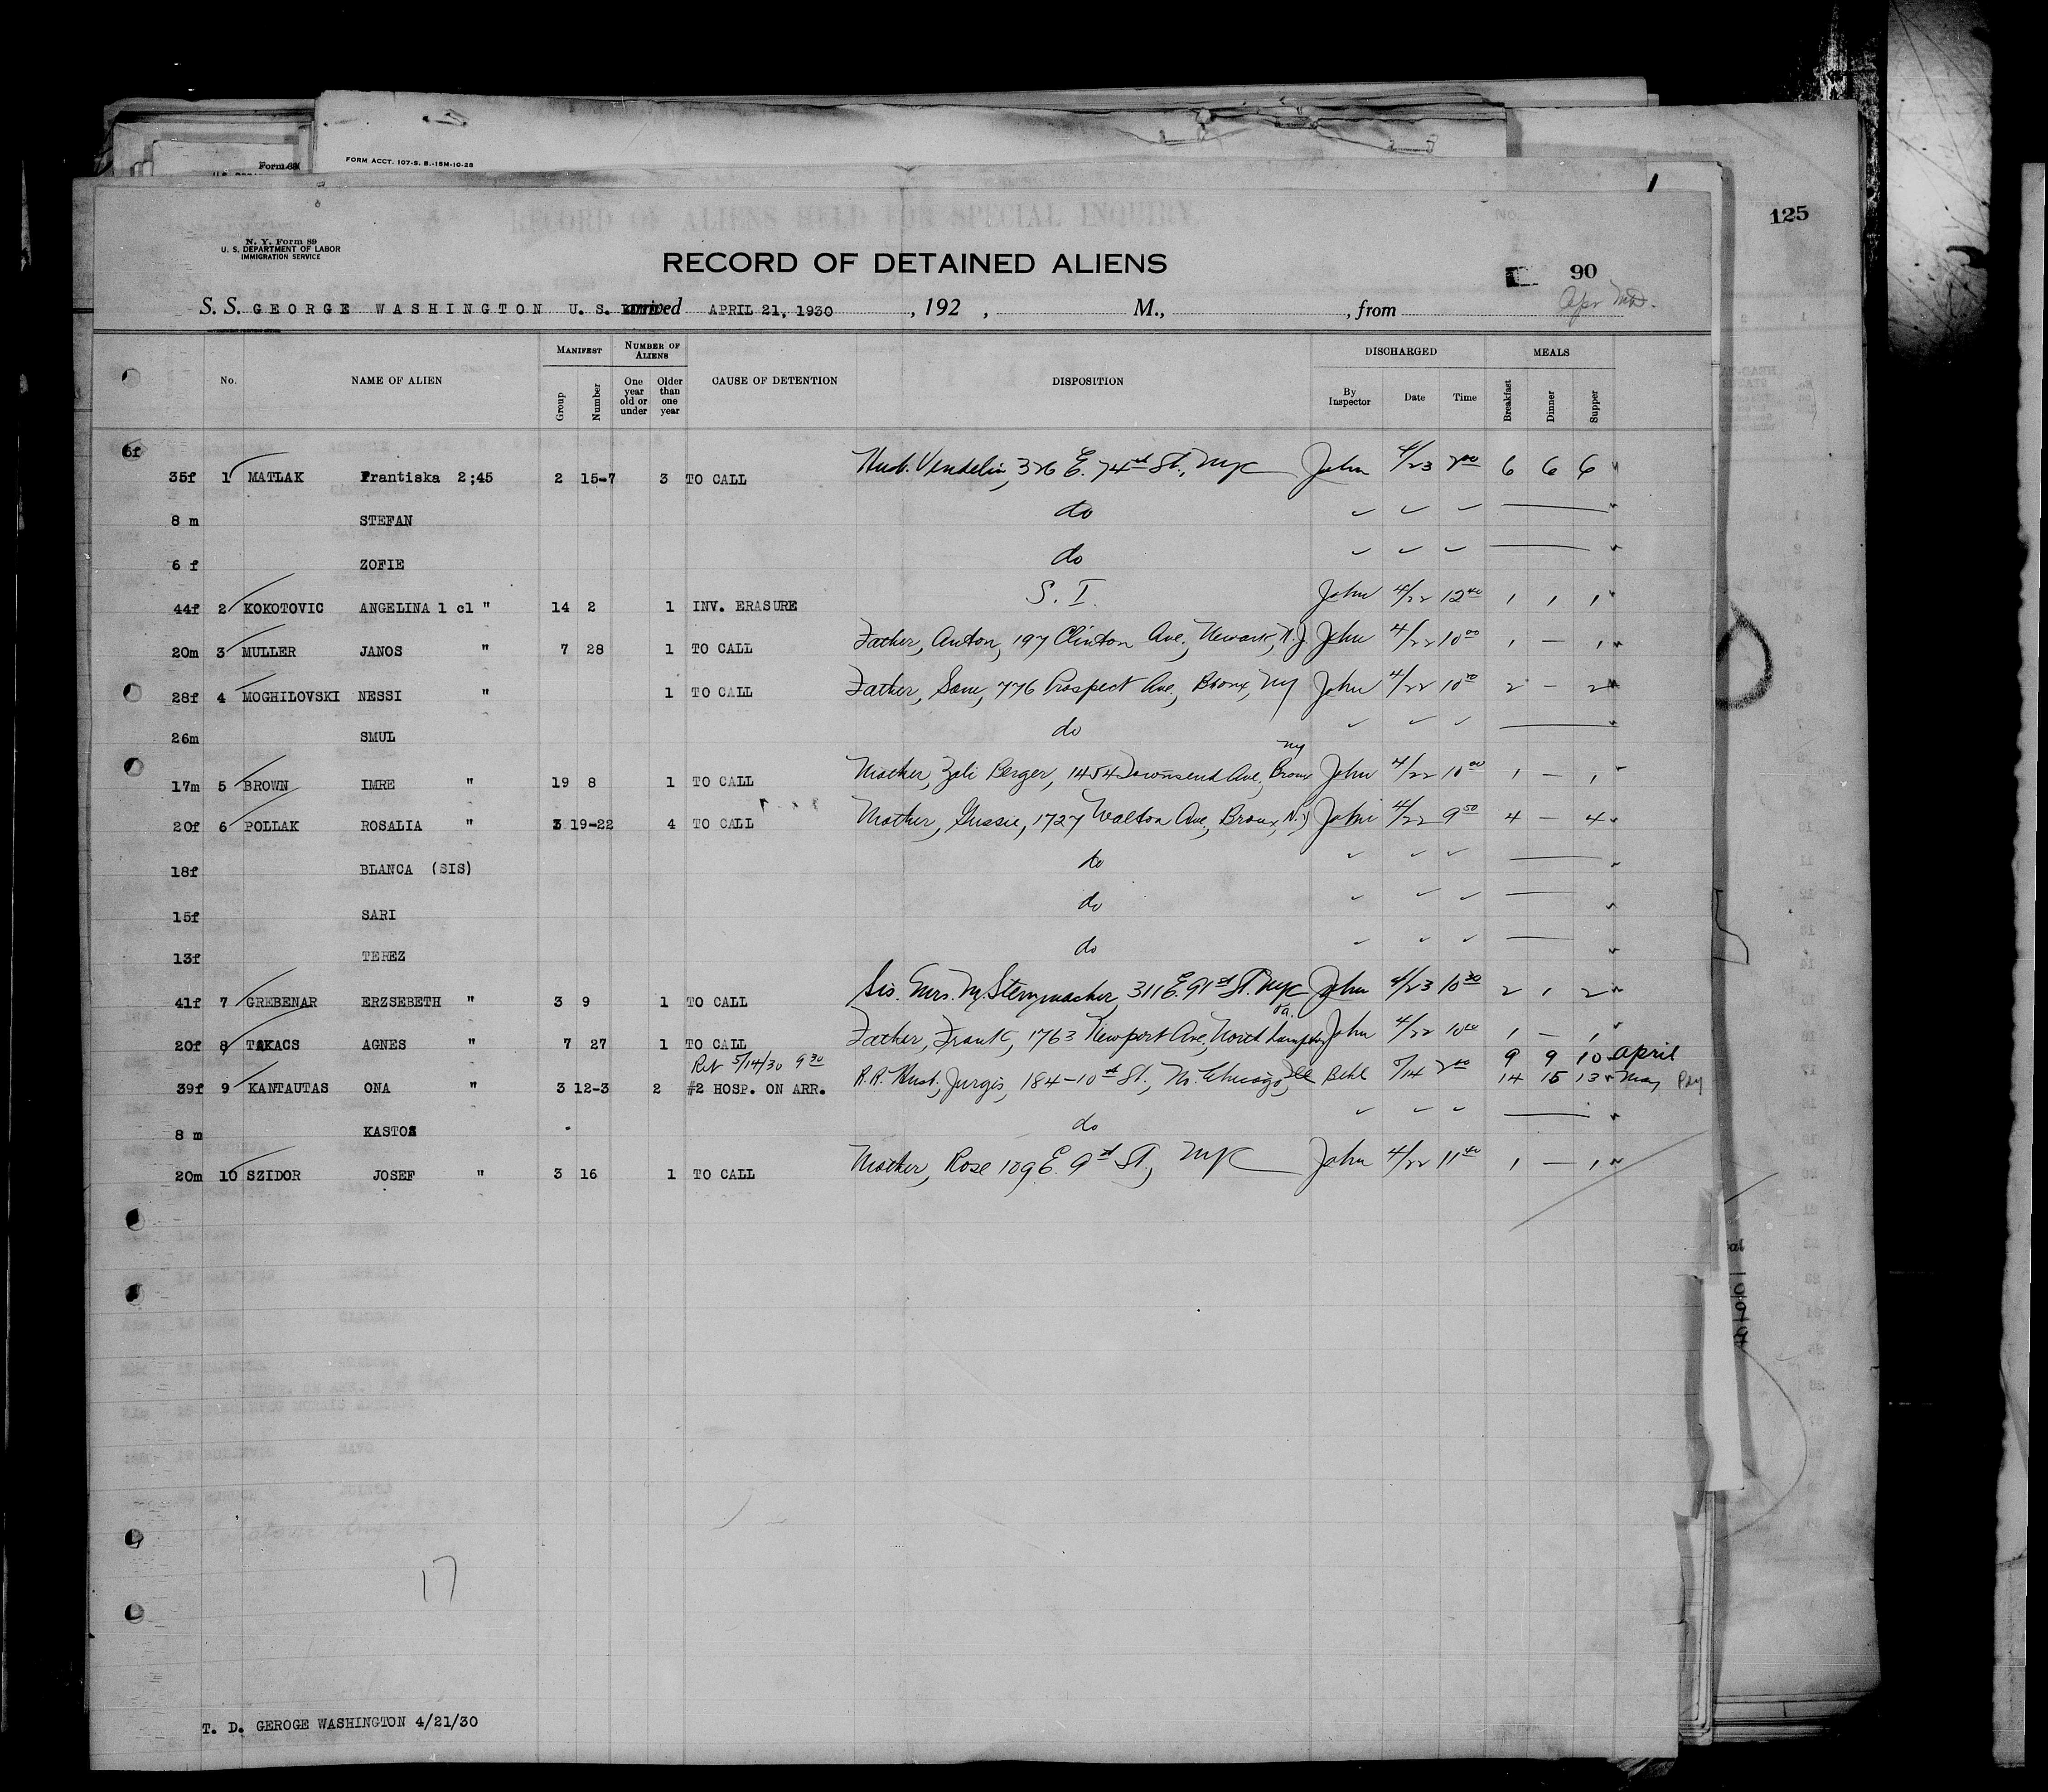 FORM ACCT. 107-S. B.-15M-10-28
125
N. Y. Form 89
U. S. DEPARTMENT OF LABOR
IMMIGRATION SERVICE
RECORD OF DETAINED ALIENS
90
S. S. GEORGE WASHINGTON U. S. arrived APRIL 21, 1930, 192 , M., , from
No. NAME OF ALIEN MANIFEST Group Number NUMBER OF ALIENS One year old or under Older than one year CAUSE OF DETENTION DISPOSITION DISCHARGED By Inspector Date Time MEALS Breakfast Dinner Supper
6f
35f 1 MATLAK Frantiska 2;45 2 15-7 3 TO CALL Husb. Vendelin, 326 E. 74th St., NYC John 4/23 2 00 6 6 6
8 m STEFAN do
6 f ZOFIE do
44f 2 KOKOTOVIC ANGELINA 1 cl " 14 2 1 INV. ERASURE S. I. John 4/22 12 40 1 1 1
20m 3 MULLER JANOS " 7 28 1 TO CALL Father, Anton, 197 Clinton Ave., Newark, N.J. John 4/22 10 00 1 — 1
28f 4 MOGHILOVSKI NESSI " 1 TO CALL Father, Sam, 776 Prospect Ave, Bronx, NY John 4/22 10 2 — 2
26m SMUL do
17m 5 BROWN IMRE " 19 8 1 TO CALL Mother, Zali Berger, 1454 Townsend Ave, Bronx NY John 4/22 10 00 1 — 1
20f 6 POLLAK ROSALIA " 3 19-22 4 TO CALL Mother, Gussie, 1727 Walton Ave., Bronx, N.Y John 4/22 9 50 4 — 4
18f BLANCA (SIS) do
15f SARI do
13f TEREZ do
41f 7 GREBENAR ERZSEBETH " 3 9 1 TO CALL Sis. Mrs. M. 311 E. 91st St. NYC John 4/23 10 30 2 1 2
20f 8 TAKACS AGNES " 7 27 1 TO CALL Father, Frank, 1763 Newport Ave, North Pa. John 4/22 10 1 — 1
Ret 5/14/30 9 30 9 9 10 April
39f 9 KANTAUTAS ONA " 3 12-3 2 #2 HOSP. ON ARR. R.R. Husb., Jurgis, 184-10th St., No. Chicago, Ill Behl 5/14 2 00 14 15 13 May
8 m KASTOS do
20m 10 SZIDOR JOSEF " 3 16 1 TO CALL Mother, Rose 109 E. 9th St., NYC John 4/22 11 40 1 — 1
17
T. D. GEROGE WASHINGTON 4/21/30